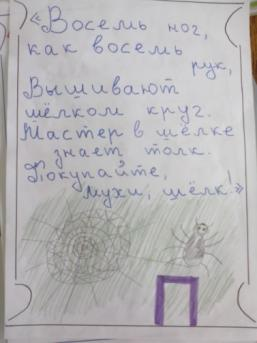 «Восемь ног,
как восемь
рук,
Вышивают
шёлком круг.
Мастер в шёлке
знает толк.
Покупайте,
мухи, шёлк!»
П